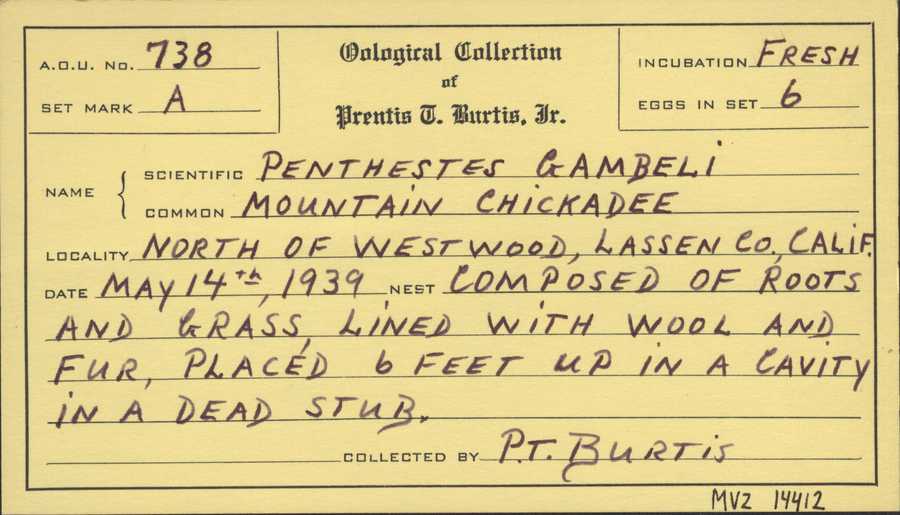 A.O.U. No. 738
Oological Collection
INCUBATION FRESH
SET MARK A
of
EGGS IN SET 6
Prentis T. Burtis, Jr.
NAME { SCIENTIFIC PENTHESTES GAMBELI
COMMON MOUNTAIN CHICKADEE
LOCALITY NORTH OF WESTWOOD, LASSEN CO., CALIF.
DATE MAY 14th, 1939 NEST COMPOSED OF ROOTS
AND GRASS, LINED WITH WOOL AND
FUR, PLACED 6 FEET UP IN A CAVITY
IN A DEAD STUB.
COLLECTED BY P.T. BURTIS
MVZ 14412